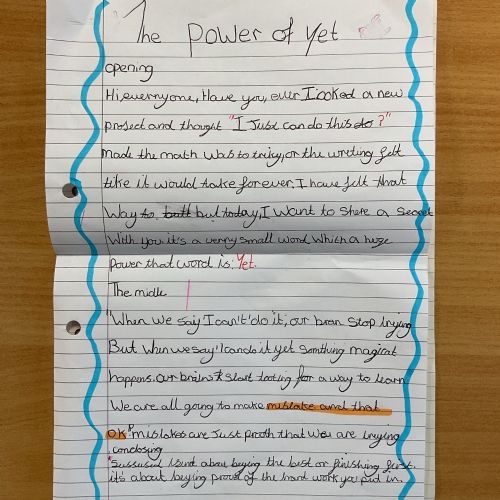 The Power of Yet
opening
Hi everryone, Have you, ever Iooked a new
prosect and thought "I Just can do this do ?"
made the math was to triky, or the writing felt
like it would take forever. I have felt that
way to batt but today, I want to share a secret
With you it's a verry small word which a huge
power that word is: Yet.
The midle
"When we say I can't do it, our bran stop trying
But when we say 'I can do it yet somthing magical
happens. our brains start looting for a way to learn
We are all going to make mistake and that
OK" mistakes are Just proof that we are trying
conclosing
isint about beying the best or finishing first.
it's about beying proud of the hard work you put in.